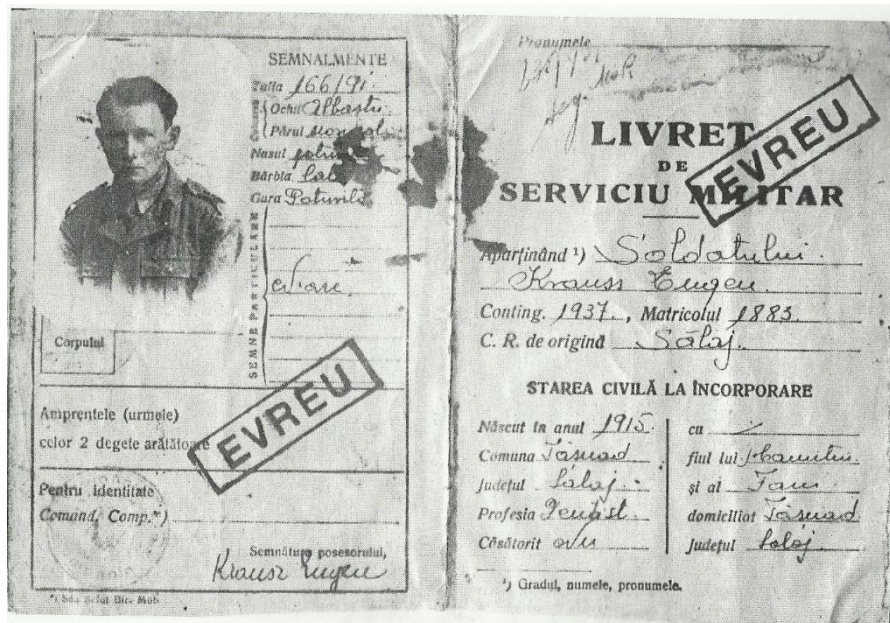 SEMNALMENTE
Talia 166/91
Ochii Albaștri
Părul
Nasul
Bărbia
Gura Potrivită
SEMNE PARTICULARE
Corpului
Amprentele (urmele)
celor 2 degete arătătoare
EVREU
Pentru identitate
Comand. Comp.*)
Semnătura posesorului,
Krausz Eugen
Pronumele
LIVRET
DE
SERVICIU MILITAR
EVREU
Aparținând ¹) Soldatului
Krausz Eugen
Conting. 1937, Matricolul 1883
C. R. de origină Sălaj
STAREA CIVILĂ LA ÎNCORPORARE
Născut în anul 1915 cu
Comuna Tășnad fiul lui
Județul Sălaj și al Fani
Profesia domiciliat Tășnad
Căsătorit Județul Sălaj
¹) Gradul, numele, pronumele.